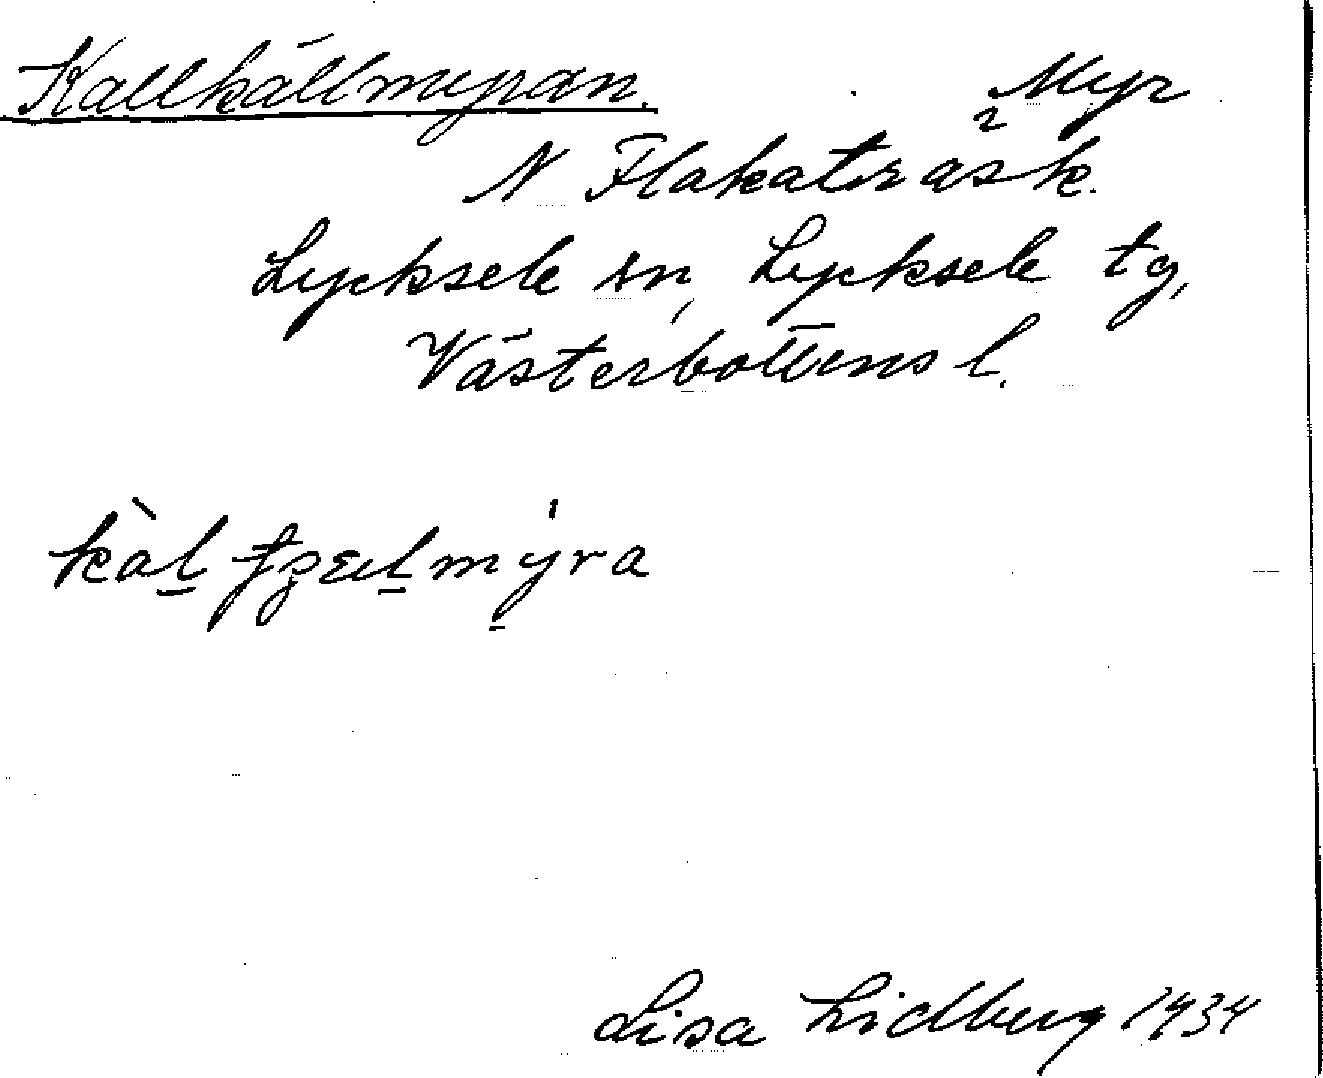 Kallkällmyran. Myr
N Flakaträsk.
Lycksele sn, Lycksele tg,
Västerbottens l.
Lisa Lidberg 1934